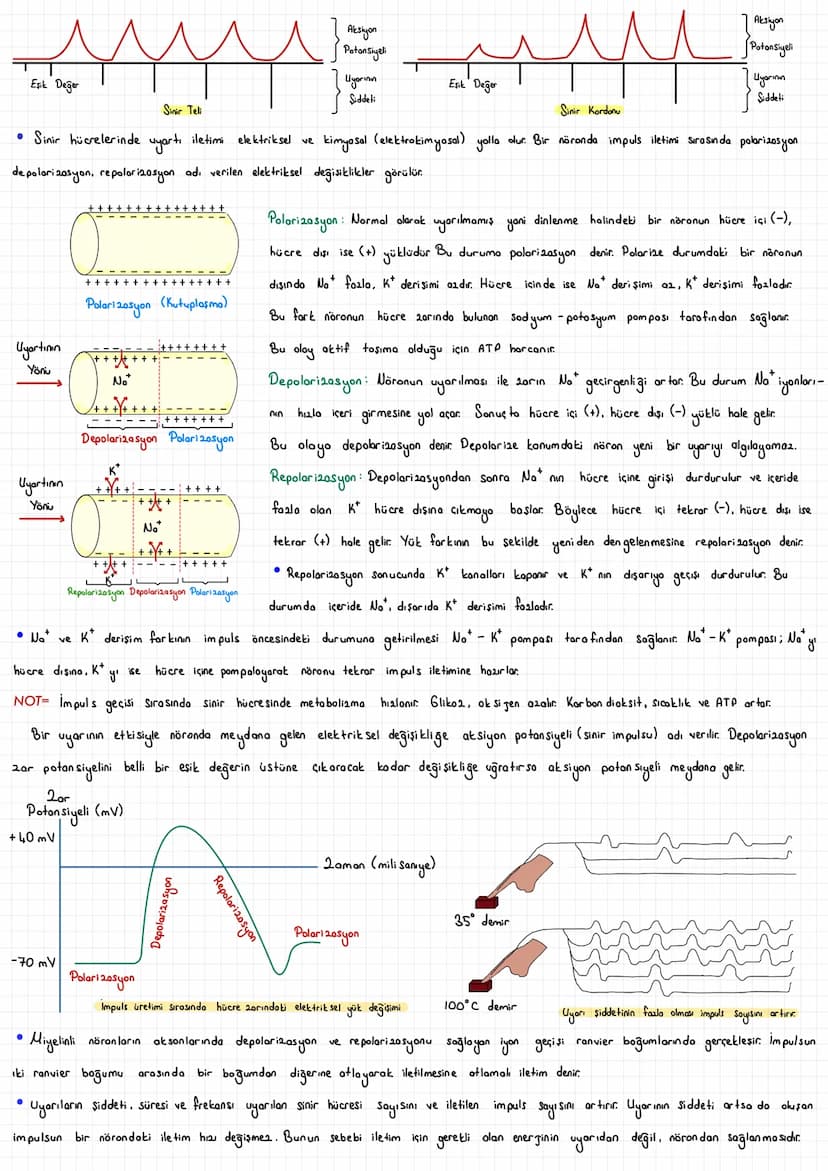 Aksiyon
Potansiyeli
Uyarının
Şiddeti
Eşik Değer
Sinir Teli
Aksiyon
Potansiyeli
Uyarının
Şiddeti
Eşik Değer
Sinir Kordonu
• Sinir hücrelerinde uyartı iletimi elektriksel ve kimyasal (elektrokimyasal) yolla olur. Bir nöronda impuls iletimi sırasında polarizasyon
depolarizasyon, repolarizasyon adı verilen elektriksel değişiklikler görülür.
+ + + + + + + + + + + + + + + +
- - - - - - - - - - - - - -
- - - - - - - - - - - - - -
+ + + + + + + + + + + + + + + +
Polarizasyon (Kutuplaşma)
Polarizasyon: Normal olarak uyarılmamış yani dinlenme halindeki bir nöronun hücre içi (-),
hücre dışı ise (+) yüklüdür Bu duruma polarizasyon denir. Polarize durumdaki bir nöronun
dışında Na⁺ fazla, K⁺ derişimi azdır. Hücre içinde ise Na⁺ derişimi az, K⁺ derişimi fazladır.
Bu fark nöronun hücre zarında bulunan sodyum - potasyum pompası tarafından sağlanır.
Bu olay aktif taşıma olduğu için ATP harcanır.
Uyartının
Yönü
Na⁺
Depolarizasyon Polarizasyon
Depolarizasyon: Nöronun uyarılması ile zarın Na⁺ geçirgenliği artar. Bu durum Na⁺ iyonları-
nın hızla içeri girmesine yol açar. Sonuçta hücre içi (+), hücre dışı (-) yüklü hale gelir.
Bu olaya depolarizasyon denir. Depolarize konumdaki nöron yeni bir uyarıyı algılayamaz.
Uyartının
Yönü
K⁺
Na⁺
K⁺
Repolarizasyon Depolarizasyon Polarizasyon
Repolarizasyon: Depolarizasyondan sonra Na⁺ nın hücre içine girişi durdurulur ve içeride
fazla olan K⁺ hücre dışına çıkmaya başlar. Böylece hücre içi tekrar (-), hücre dışı ise
tekrar (+) hale gelir. Yük farkının bu şekilde yeniden dengelenmesine repolarizasyon denir.
• Repolarizasyon sonucunda K⁺ kanalları kapanır ve K⁺ nın dışarıya geçişi durdurulur. Bu
durumda içeride Na⁺, dışarıda K⁺ derişimi fazladır.
• Na⁺ ve K⁺ derişim farkının impuls öncesindeki durumuna getirilmesi Na⁺ - K⁺ pompası tarafından sağlanır. Na⁺ - K⁺ pompası; Na⁺ yı
hücre dışına, K⁺ yı ise hücre içine pompalayarak nöronu tekrar impuls iletimine hazırlar.
NOT= İmpuls geçişi sırasında sinir hücresinde metabolizma hızlanır. Glikoz, oksijen azalır. Karbondioksit, sıcaklık ve ATP artar.
Bir uyarının etkisiyle nöronda meydana gelen elektriksel değişikliğe aksiyon potansiyeli (sinir impulsu) adı verilir. Depolarizasyon
zar potansiyelini belli bir eşik değerin üstüne çıkaracak kadar değişikliğe uğratırsa aksiyon potansiyeli meydana gelir.
Zar
Potansiyeli (mV)
+40 mV
Zaman (milisaniye)
Depolarizasyon
Repolarizasyon
Polarizasyon
-70 mV
Polarizasyon
İmpuls üretimi sırasında hücre zarındaki elektriksel yük değişimi
35° demir
100°C demir
Uyarı şiddetinin fazla olması impuls sayısını artırır.
• Miyelinli nöronların aksonlarında depolarizasyon ve repolarizasyonu sağlayan iyon geçişi ranvier boğumlarında gerçekleşir. İmpulsun
iki ranvier boğumu arasında bir boğumdan diğerine atlayarak iletilmesine atlamalı iletim denir.
• Uyarıların şiddeti, süresi ve frekansı uyarılan sinir hücresi sayısını ve iletilen impuls sayısını artırır. Uyarının şiddeti artsa da oluşan
impulsun bir nörondaki iletim hızı değişmez. Bunun sebebi iletim için gerekli olan enerjinin uyarıdan değil, nörondan sağlanmasıdır.